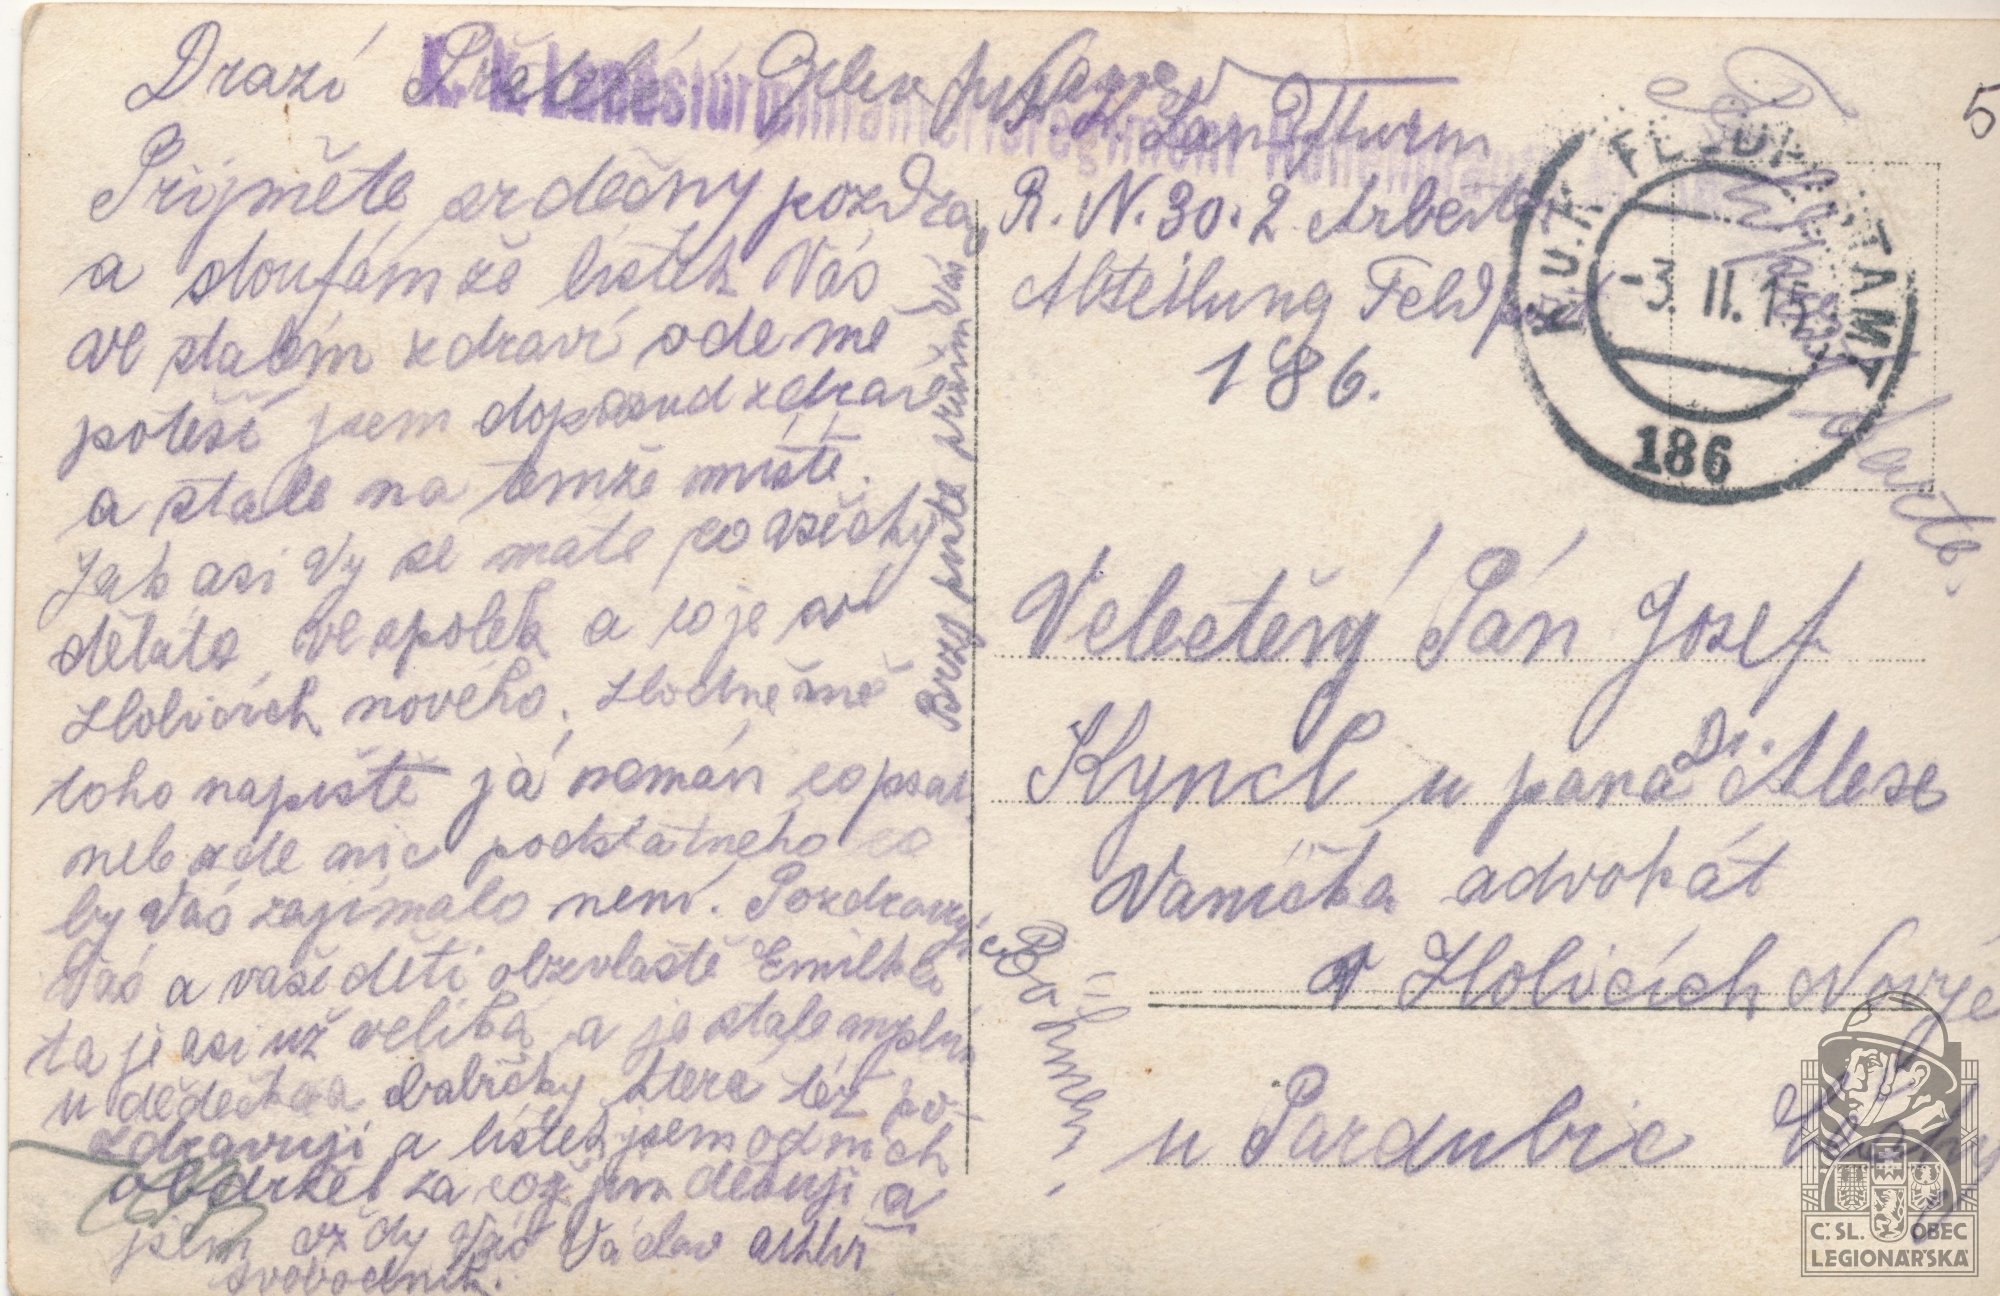 Drazí Přátelé
Přijměte srdečný pozdrav
a doufám že lístek Vás
ve stalém zdraví ode mě
potěší jsem doposud zdravě
a stale na témže místě.
Jak asi Vy se máte co všěchy
děláte ve spolek a co je v
Holicích nového. Hodně mě
toho napiště já nemán co psat
neb zde nic podstatného co
by Vás zajímalo není. Pozdravuji
Vás a vaše děti obzvlaště Emilku
ta je asi už veliká a je stale
u dědečka a babičky ktera též po-
zdravují a lístek jsem od nich
obdržel za což jim děkuji a
jsem vždy Váš Václav
svobodník.
Brzy pište prosím Vás
K. K. Landsturminfanterieregiment Hohenmauth
K. K. Landsturm
R. N. 30. 2 Arbeiter
Abteilung Feldpost
186.
K.U.K. FELDPOSTAMT
-3. II. 15
186
5
Velectěný Pán Josef
Kyncl u pana Dr. Alese
Vaníčka advokát
v Holicích Nový
u Pardubic
Böhmen
Č.SL. OBEC
LEGIONÁŘSKÁ